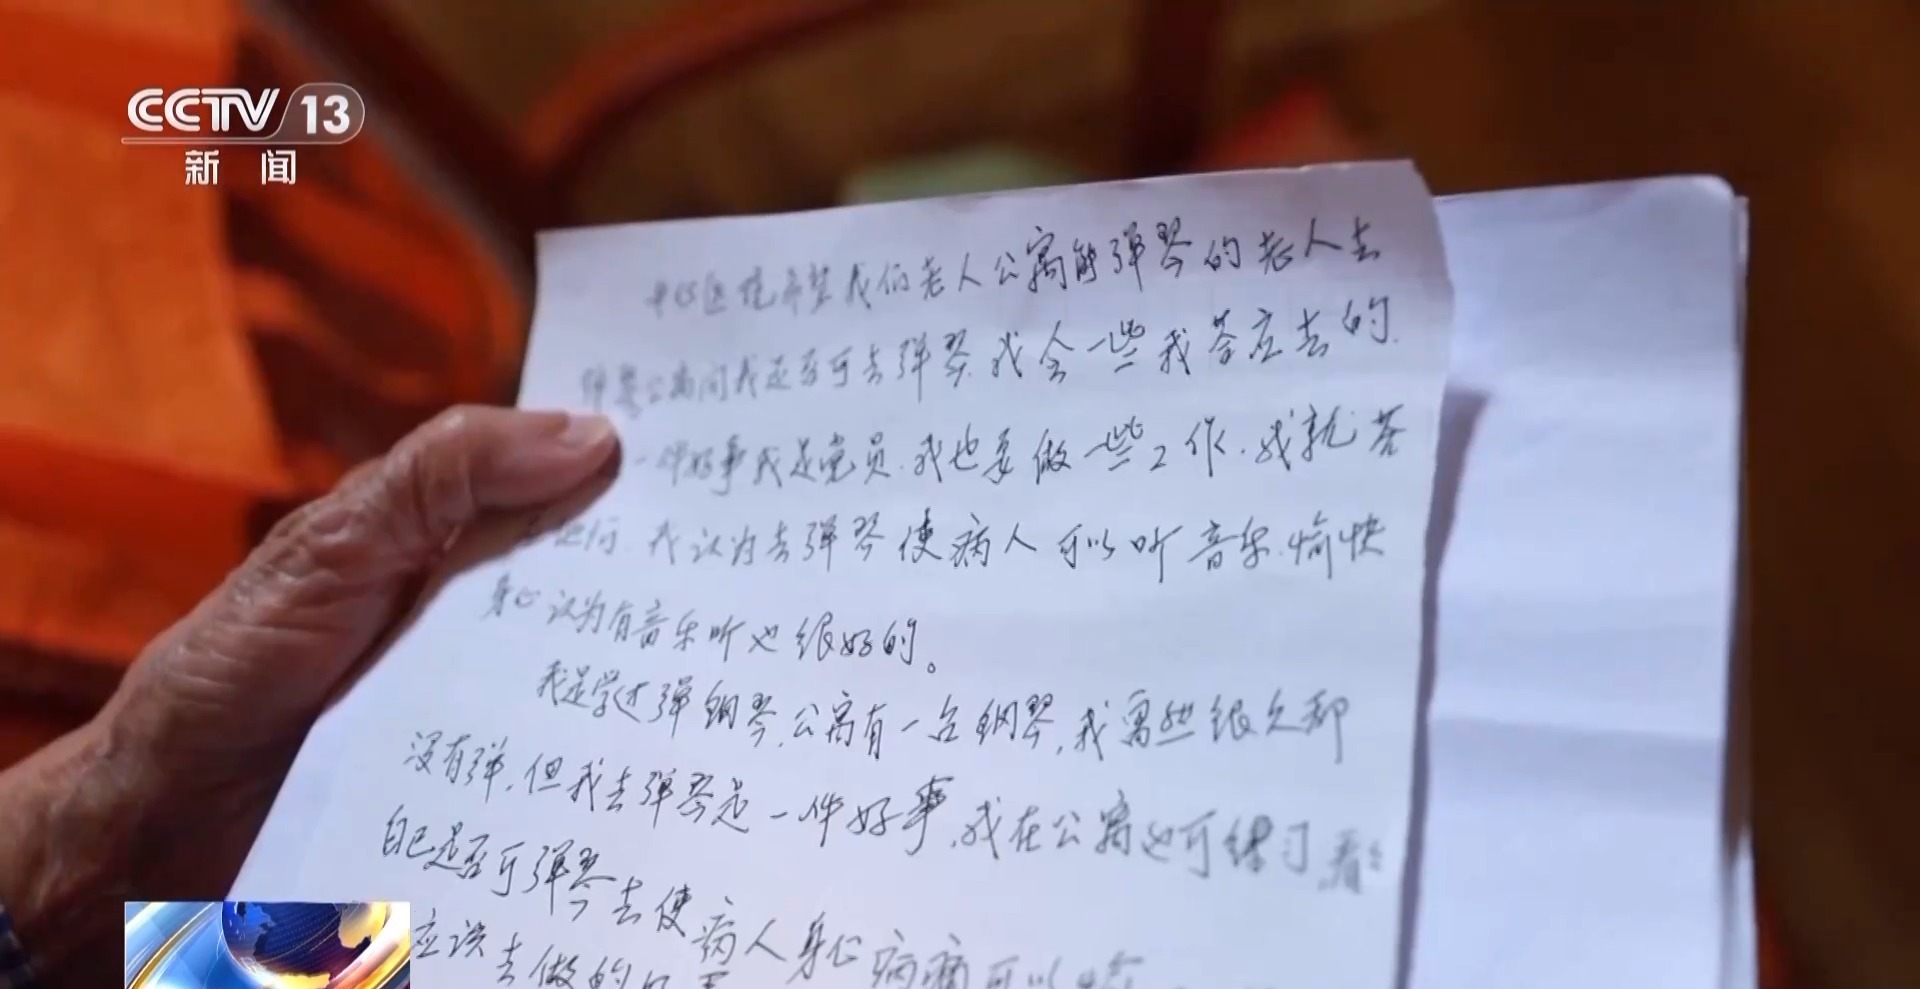 CCTV 13
新闻
中心医院希望我们老人公寓能弹琴的老人去
弹琴公寓问我是否可去弹琴.我会一些我答应去的.
一件好事我是党员.我也要做一些工作.我就答
我认为去弹琴使病人可以听音乐.愉快
身心认为有音乐听也很好的。
我是学过弹钢琴.公寓有一台钢琴,我虽然很久都
没有弹.但我去弹琴是一件好事.我在公寓也可练习.看
自己是否可弹琴去使病人身心病痛可以
应该去做的